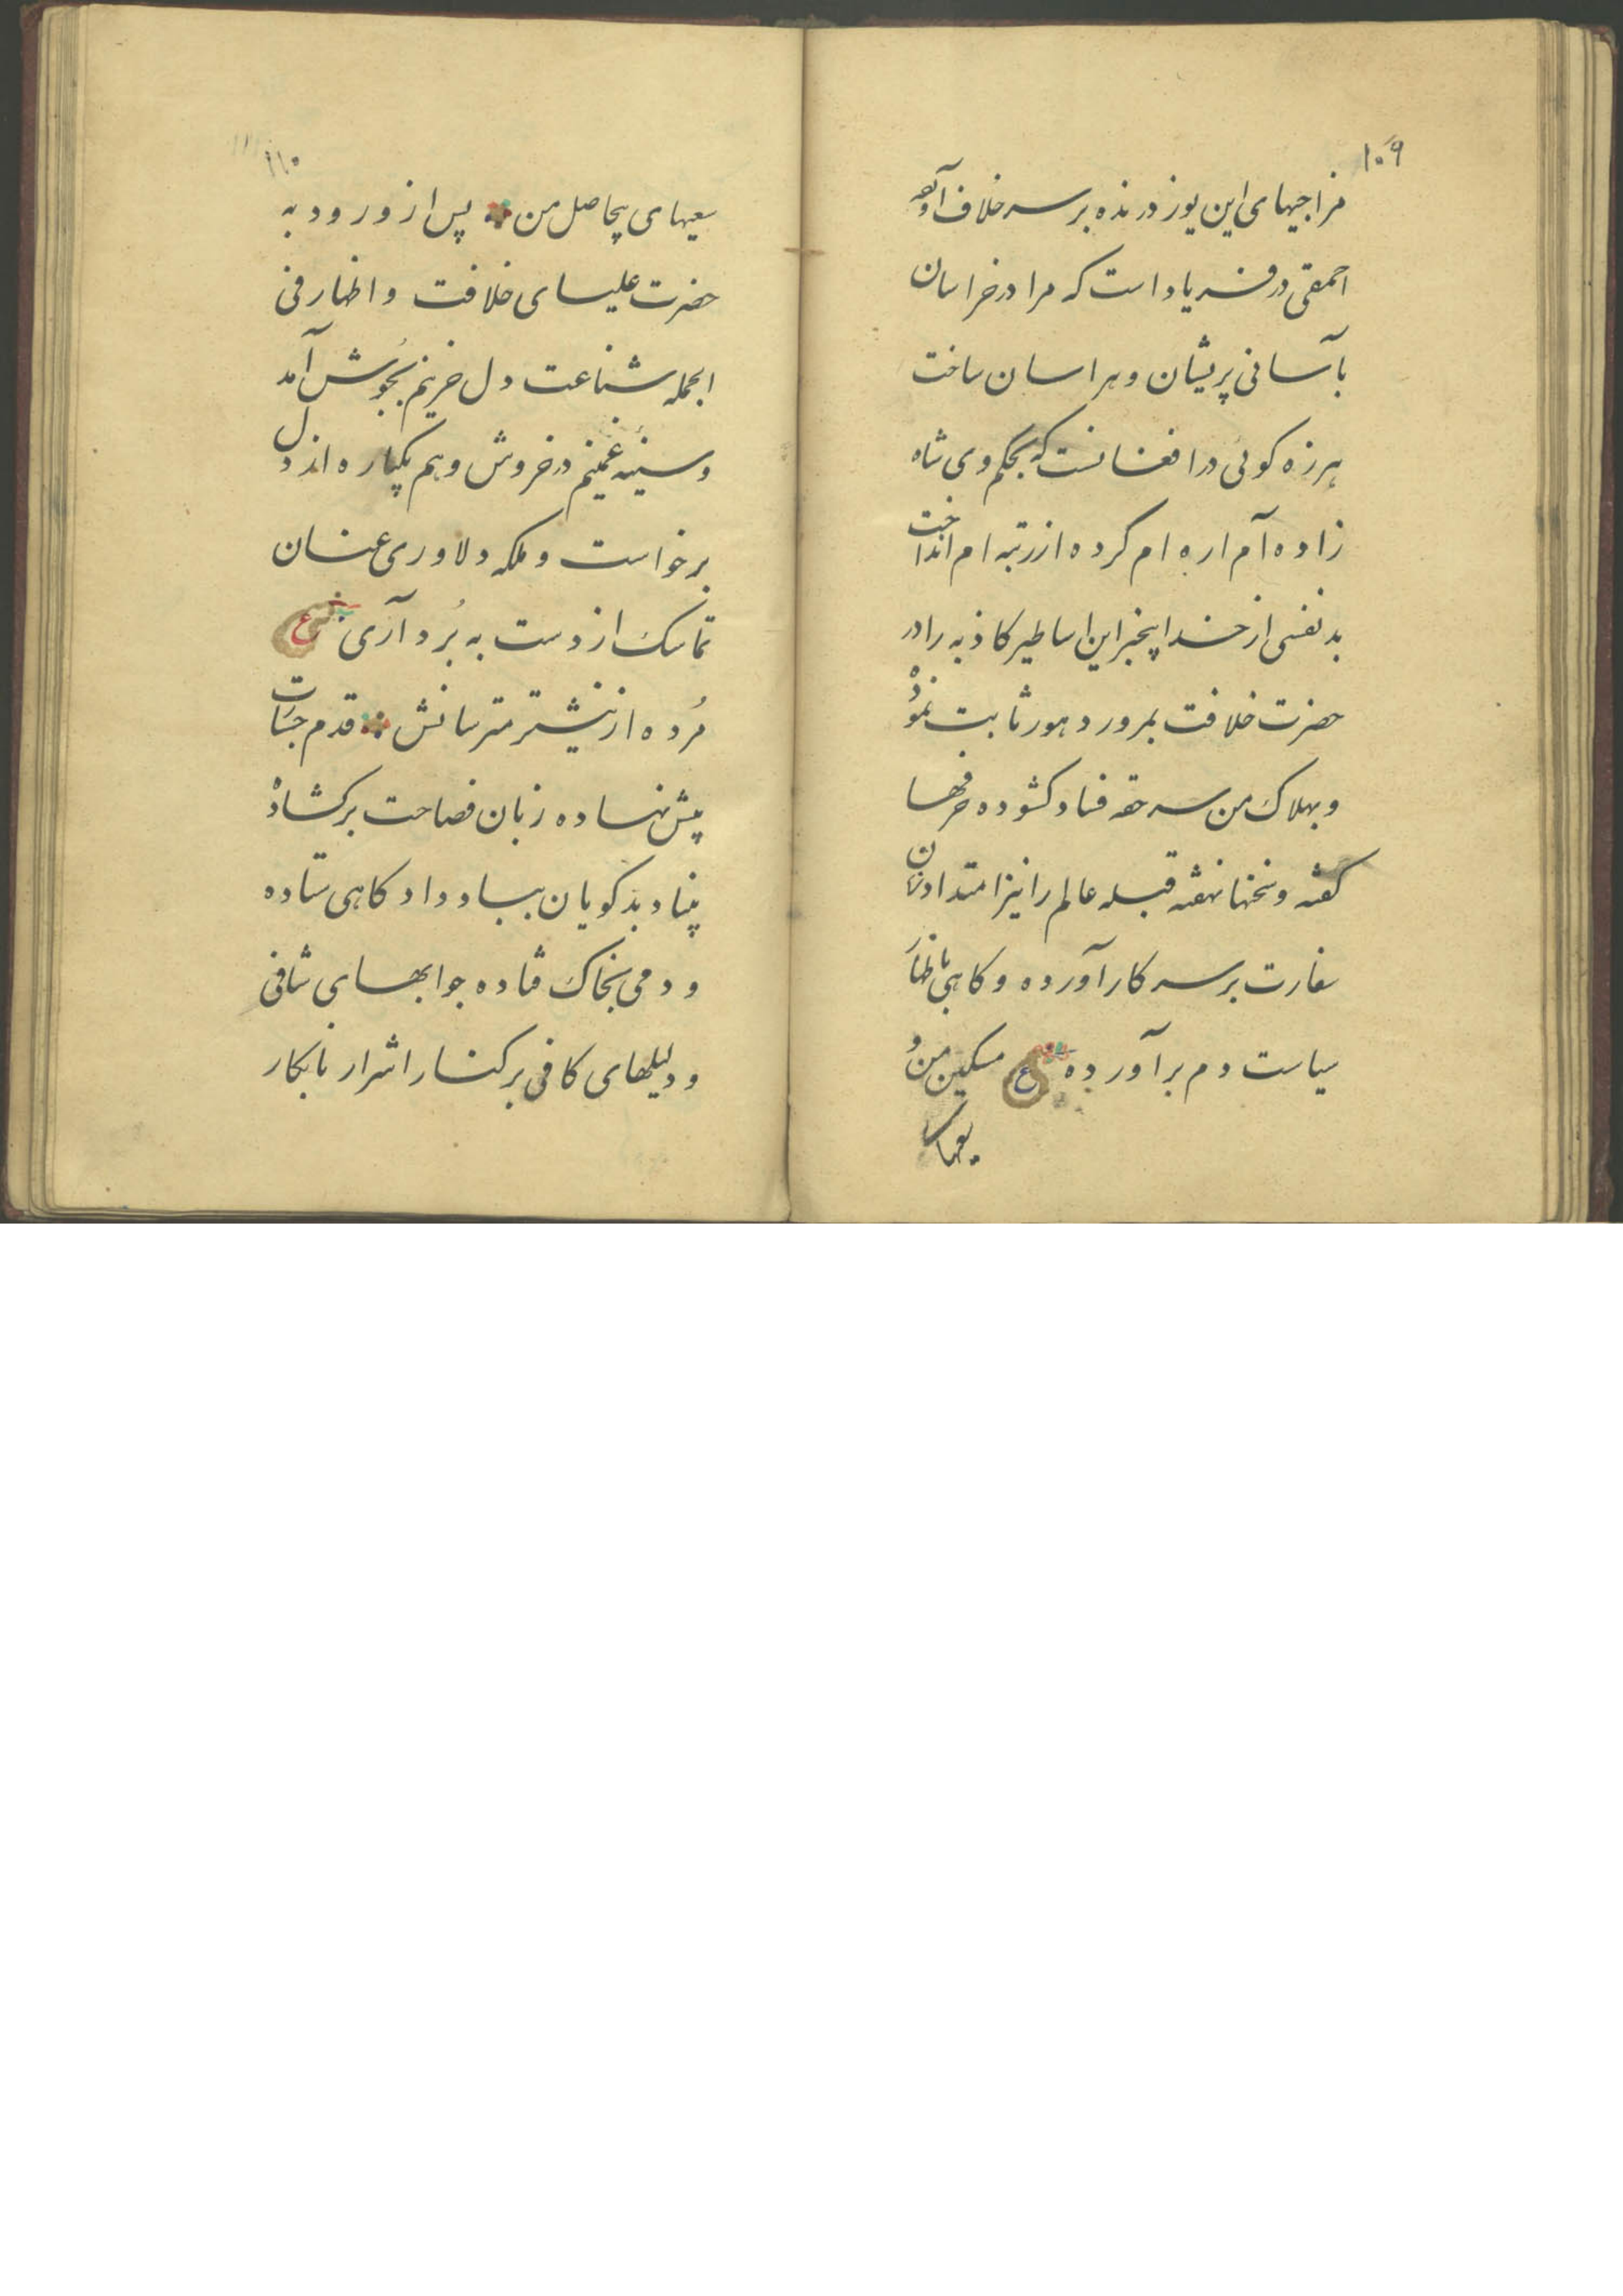 ۱۰۹
مزاجیهای این یوز درنده بر سر خلاف آنچه
احمقی در فریاد است که مرا در خراسان
بآسانی پریشان و هراسان ساخت
هرزه کوئی در افغانست که بحکم وی شاه
زاده آم اره ام کرده از رتبه ام انداخت
بد نفسی از خدا بیخبر این اساطیر کاذبه را در
حضرت خلافت بمرور دهور ثابت نموده
و بهلاک من سر حقه فساد کشوده حرفها
کفته و سخنها نهفته قبله عالم را نیز امتداد زمان
سفارت بر سر کار آورده و کاهی باظهار
سیاست دم بر آورده ع مسکین من و
سعیهای
۱۱۰
سعیهای بیحاصل من پس از ورود به
حضرت علیای خلافت و اظهار فی
الجمله شناعت دل حزینم بجوش آمد
و سینه غمینم در خروش و بیم یکپاره از دل
برخواست و ملکه دلاوری عنان
تماسک از دست به بُرد آری ع
مُرده از نیشتر مترسانش قدم جسارت
پیش نهاده زبان فصاحت برکشاده
بنیاد بدکویان بباد داد کاهی ستاده
و دمی بخاک فتاده جوابهای شافی
و دلیلهای کافی بر کنار اشرار نابکار